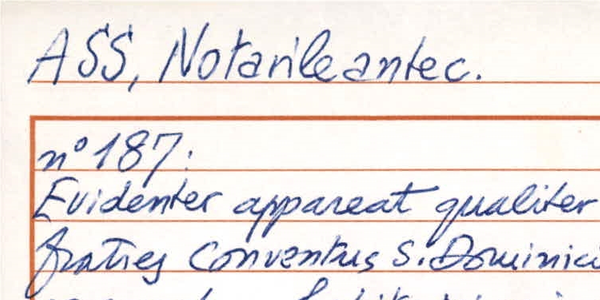 ASS, Notarile antec.
n° 187:
Evidenter appareat qualiter
fratres Conventus S. Dominici